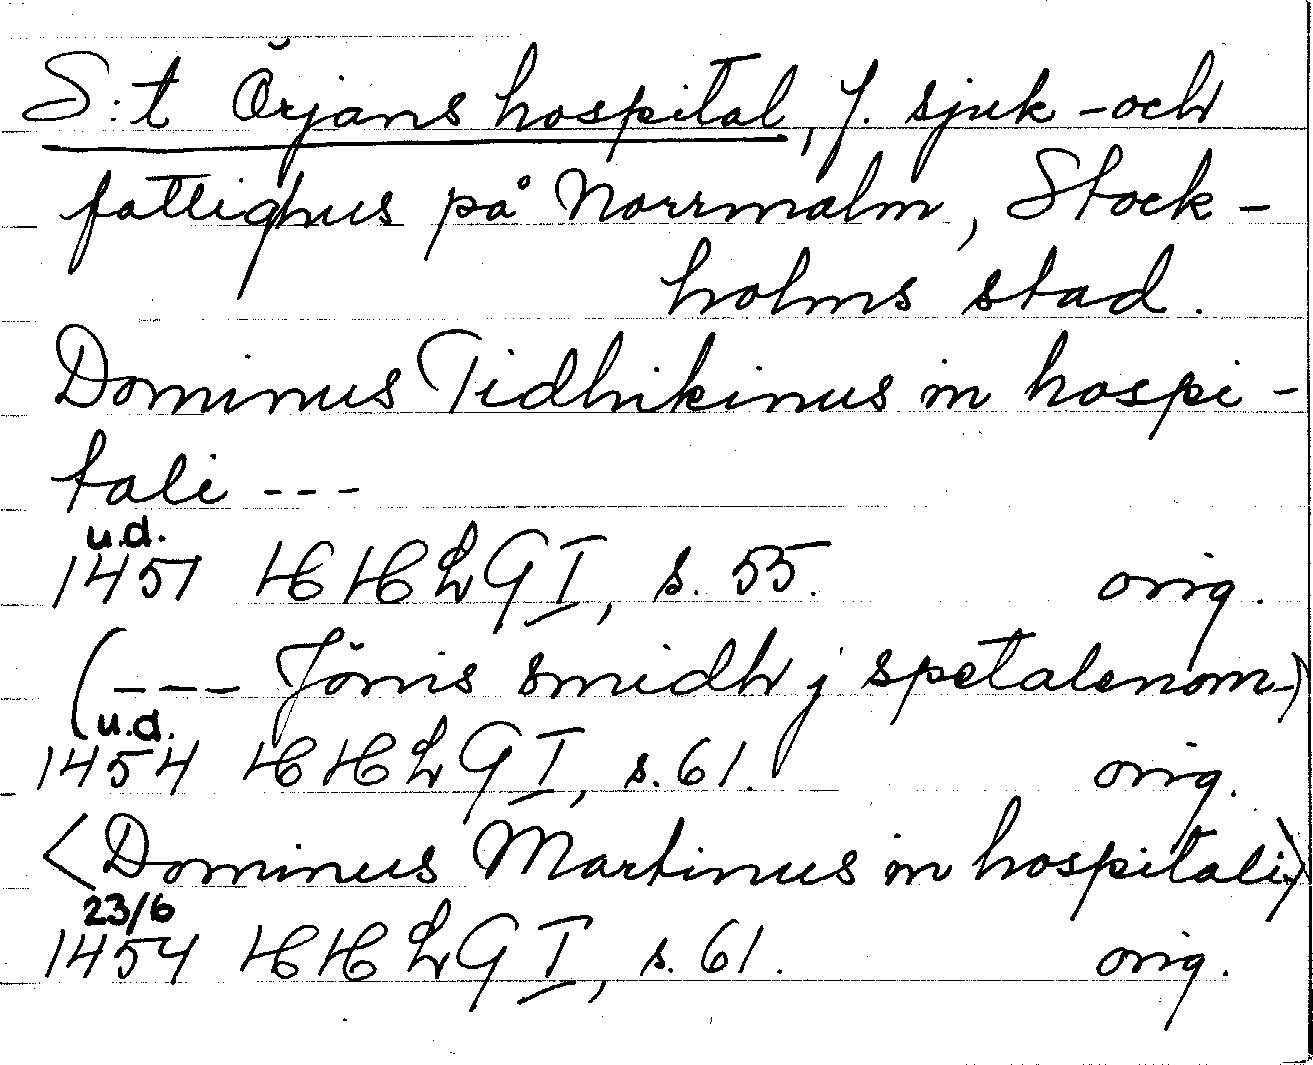 S:t Örjans hospital, f. sjuk- och
fattighus på Norrmalm, Stock-
holms stad.
Dominus Tidhikinus in hospi-
tali ---
u.d.
1451 HHLG I, s. 55. orig.
(--- Jönis smidh j spetalenom)
u.d.
1454 HHLG I, s. 61. orig.
<Dominus Martinus in hospitali>
23/6
1454 HHLG I, s. 61. orig.